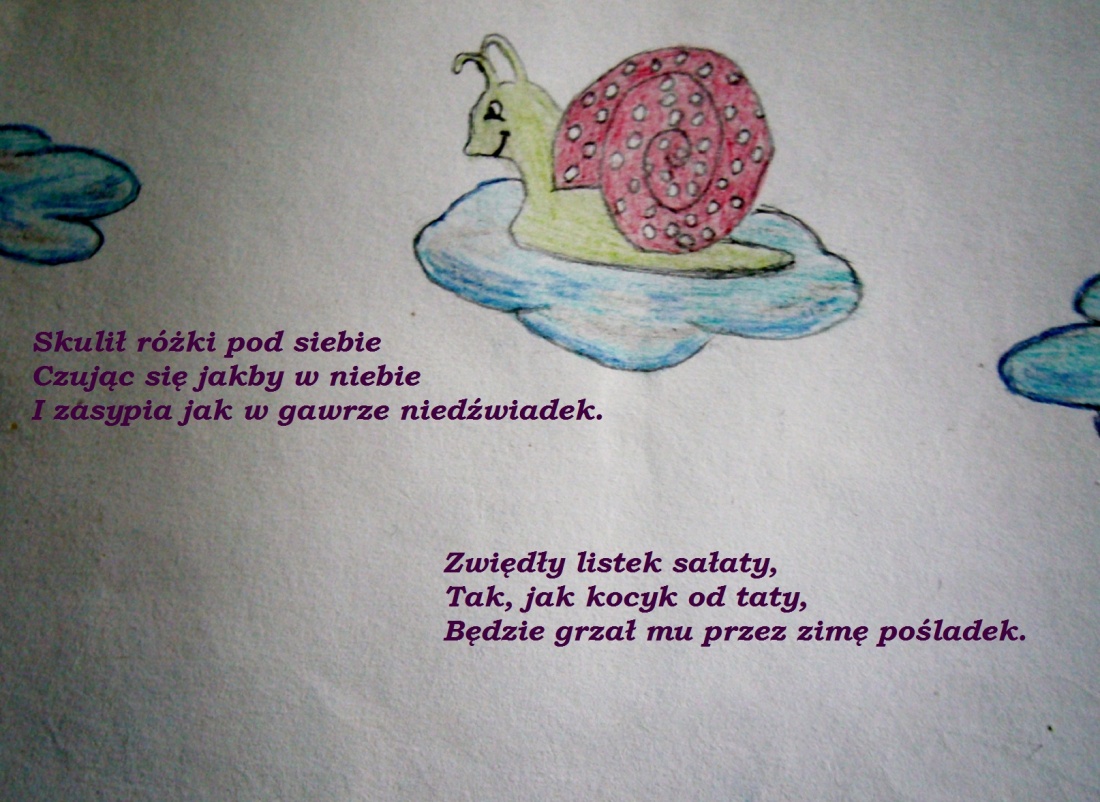 Skulił różki pod siebie
Czując się jakby w niebie
I zasypia jak w gawrze niedźwiadek.
Zwiędły listek sałaty,
Tak, jak kocyk od taty,
Będzie grzał mu przez zimę pośladek.